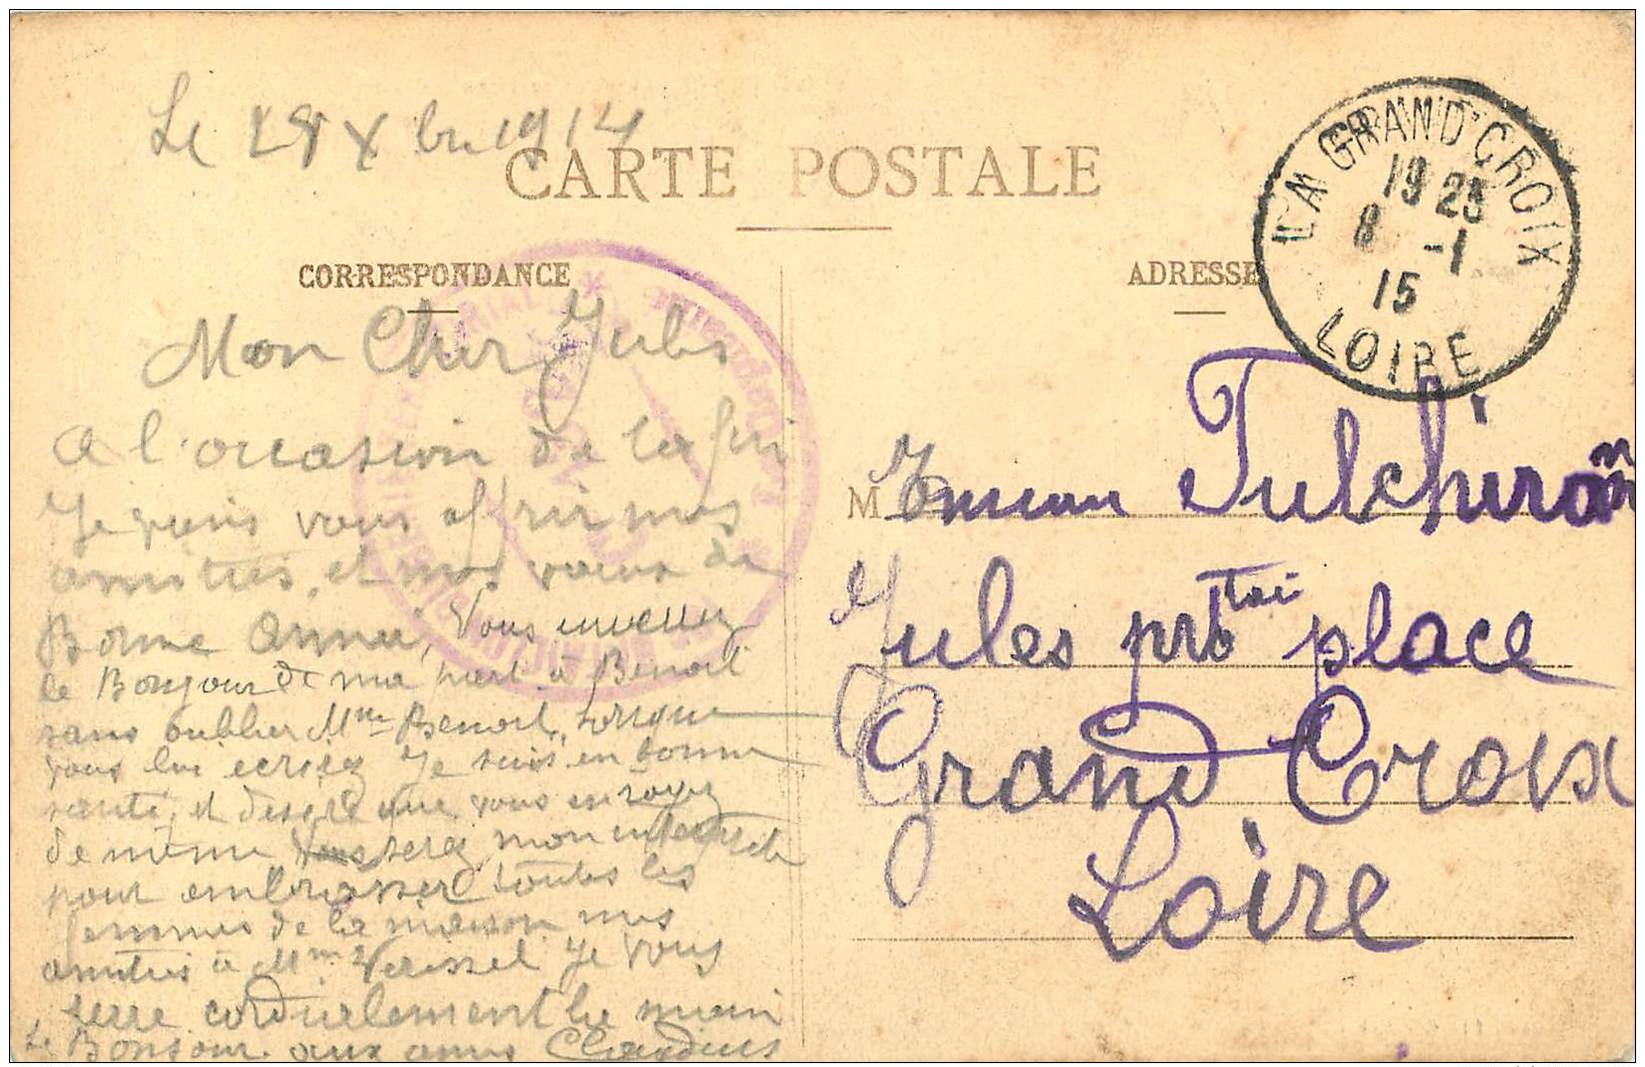 Le 29 Xbre 1914
CARTE POSTALE
LA GRAND'CROIX
19 25
8 -1
15
LOIRE
CORRESPONDANCE
ADRESSE
Mon Cher Jules
a l'occasion de la fin
Je vais vous offrir mes
amitiés, et mes vœux de
Bonne Année, Vous
le Bonjour de ma part à Benoit
sans oublier Mme Benoit, Lorsque
vous lui écrirez Je suis en bonne
santé, et désire que vous en soyez
de même Vous serez mon interprète
pour embrasser toutes les
femmes de la maison mes
amitiés à Mme Verissel Je vous
serre cordialement la main
Le Bonjour aux amis Claudius
M
Monsieur Tulchiron
Jules pptaire place
Grand Croix
Loire